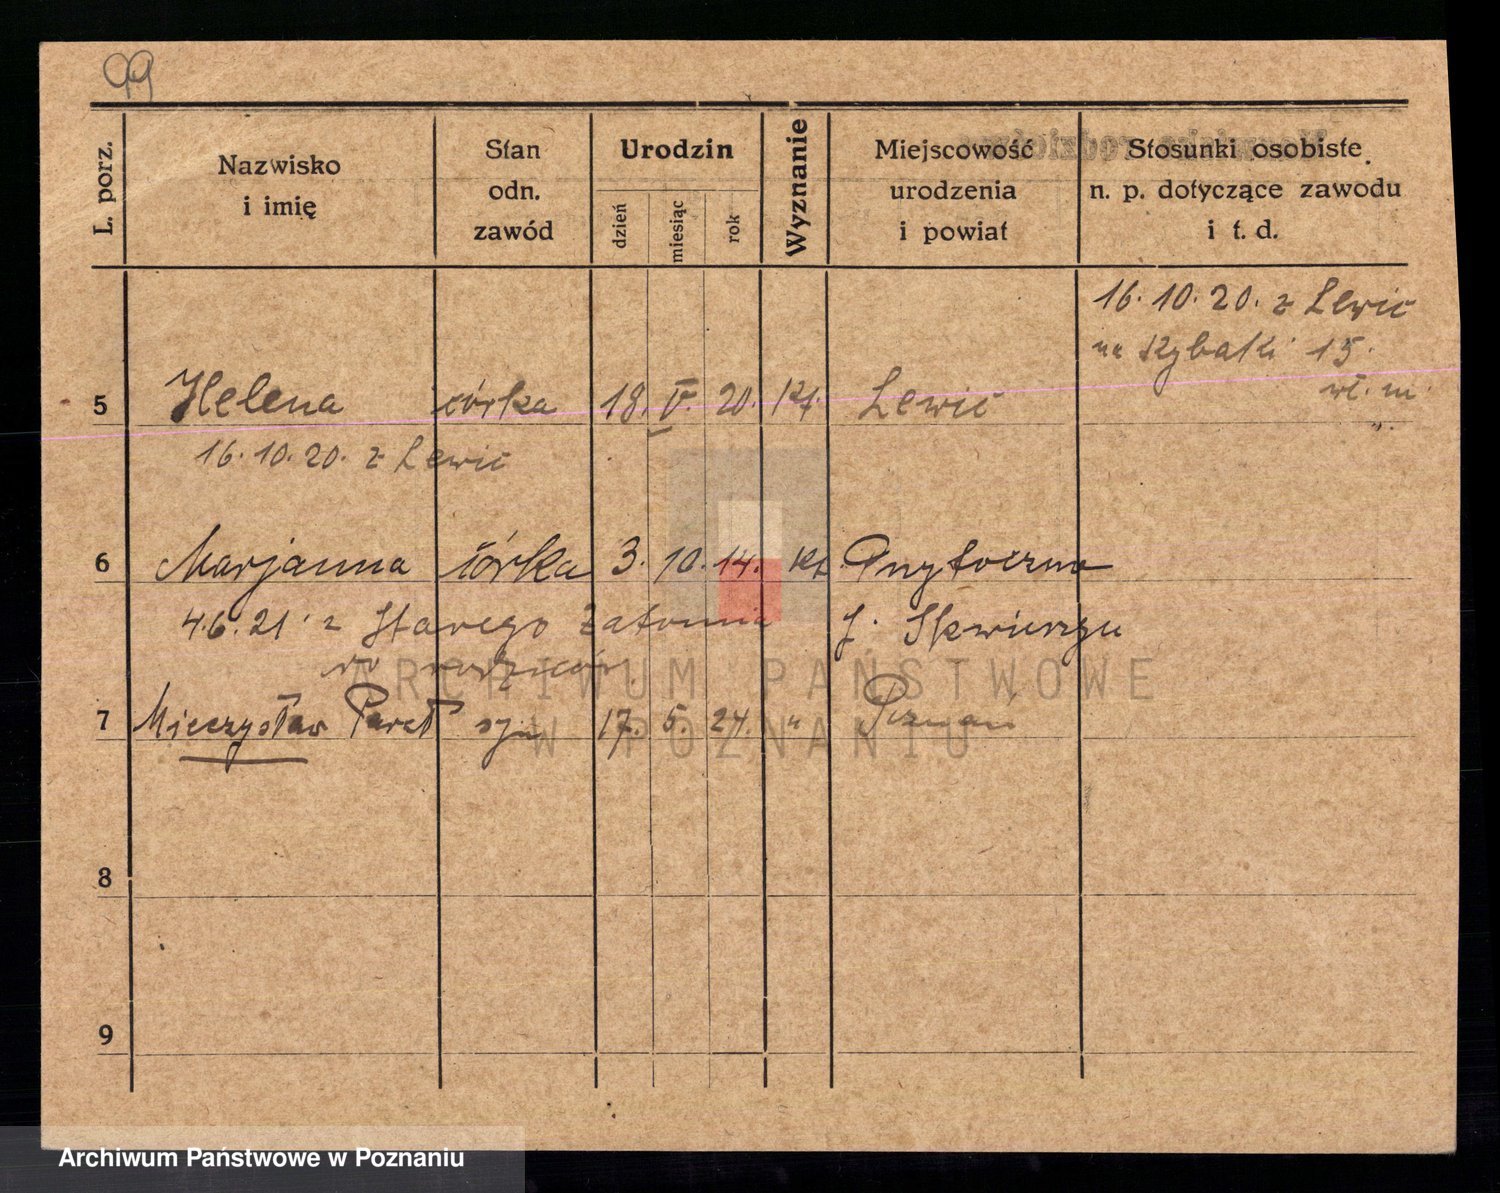 99
L. porz.
Nazwisko
i imię
Stan
odn.
zawód
Urodzin
dzień
miesiąc
rok
Wyznanie
Miejscowość
urodzenia
i powiat
Stosunki osobiste
n. p. dotyczące zawodu
i t. d.
16. 10. 20. z Lewic
na Rybaki 15.
wł. m.
5 Helena córka 18. V. 20. kt. Lewic
16. 10. 20. z Lewic
6 Marjanna córka 3. 10. 14. kt. Przytoczna
4.6.21. z Starego Zatomia p. Skwierzyn
do rodziców.
7 Mieczysław Paweł syn 17. 5. 24. " Poznań
8
9
ARCHIWUM PAŃSTWOWE
W POZNANIU
Archiwum Państwowe w Poznaniu